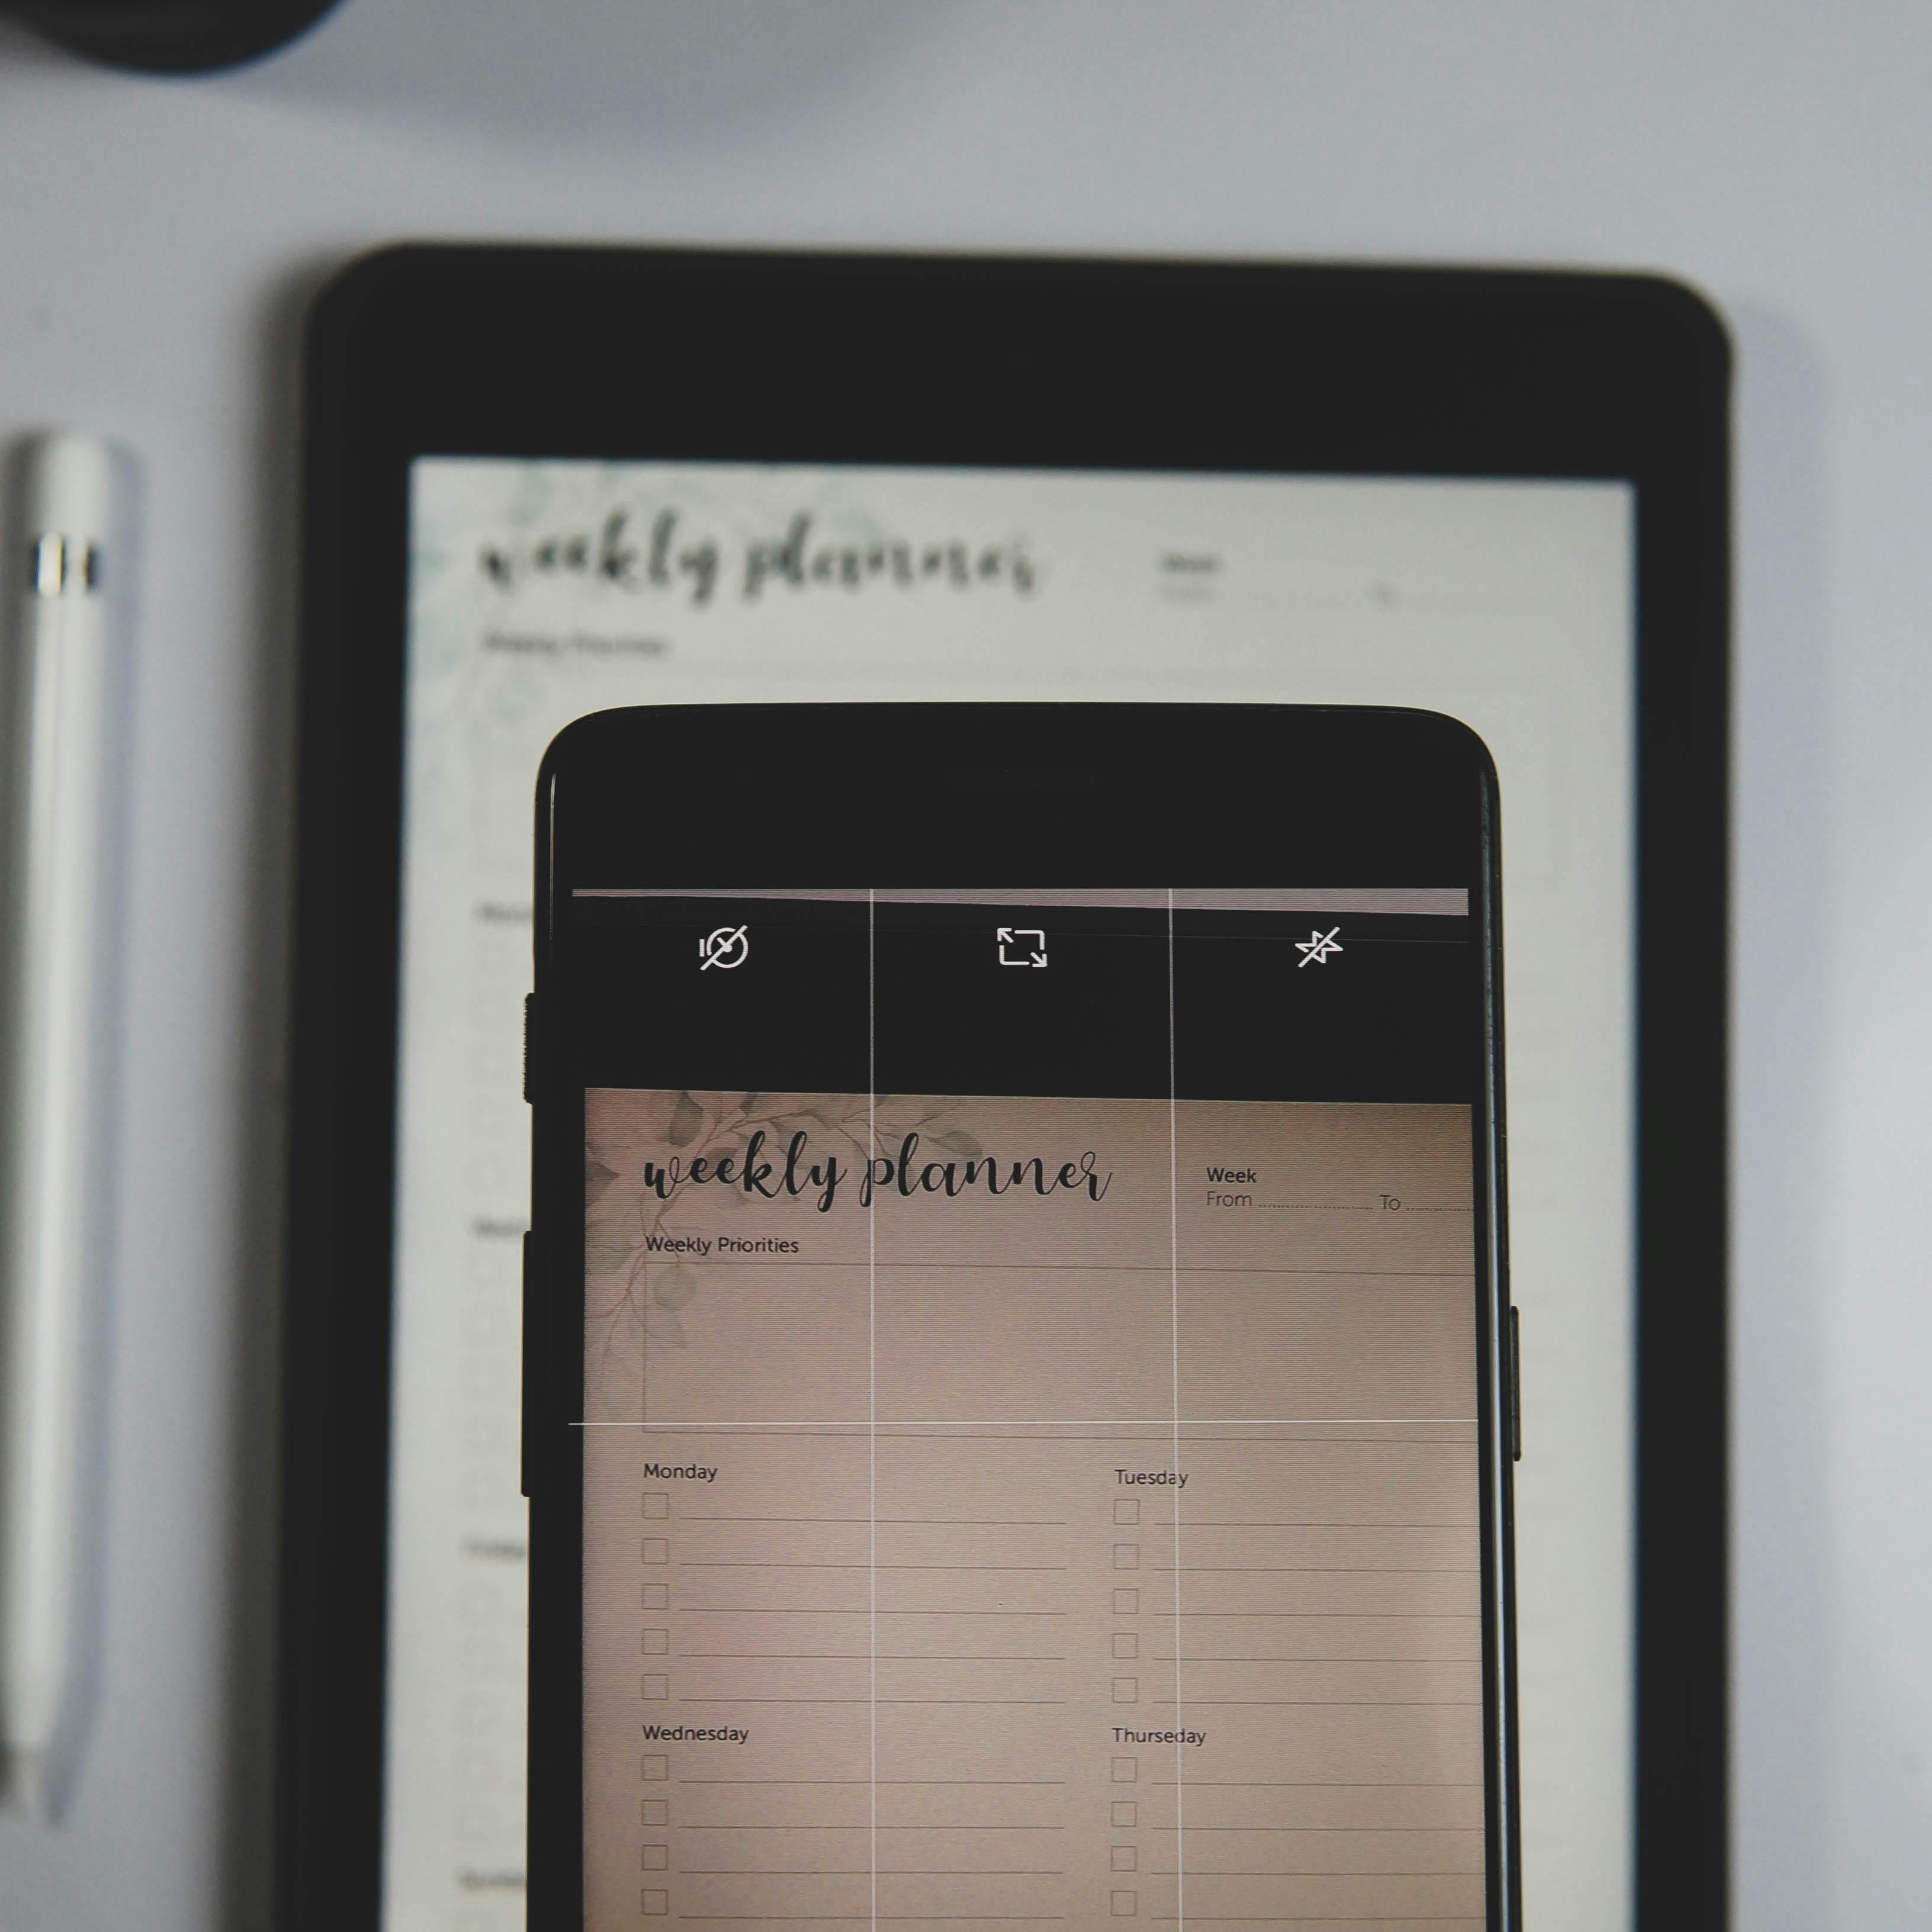 weekly planner
Weekly Priorities
weekly planner
Week
From To
Weekly Priorities
Monday Tuesday
Wednesday Thurseday